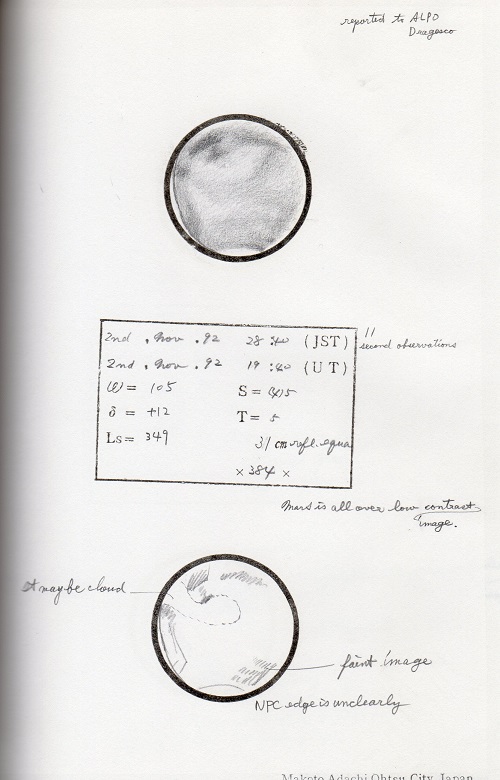 reported to ALPO
Dragesco
2nd . Nov . 92 28:40 (JST)
2nd . Nov . 92 19:40 (UT)
(ω)= 105 S= (4)5
δ = +12 T= 5
Ls= 349 31 cm refl. equa
×384 ×
11
second observations
Mars is all over low contrast
image.
It maybe cloud
faint image
NPC edge is unclearly
Makoto Adachi Ohtsu City, Japan